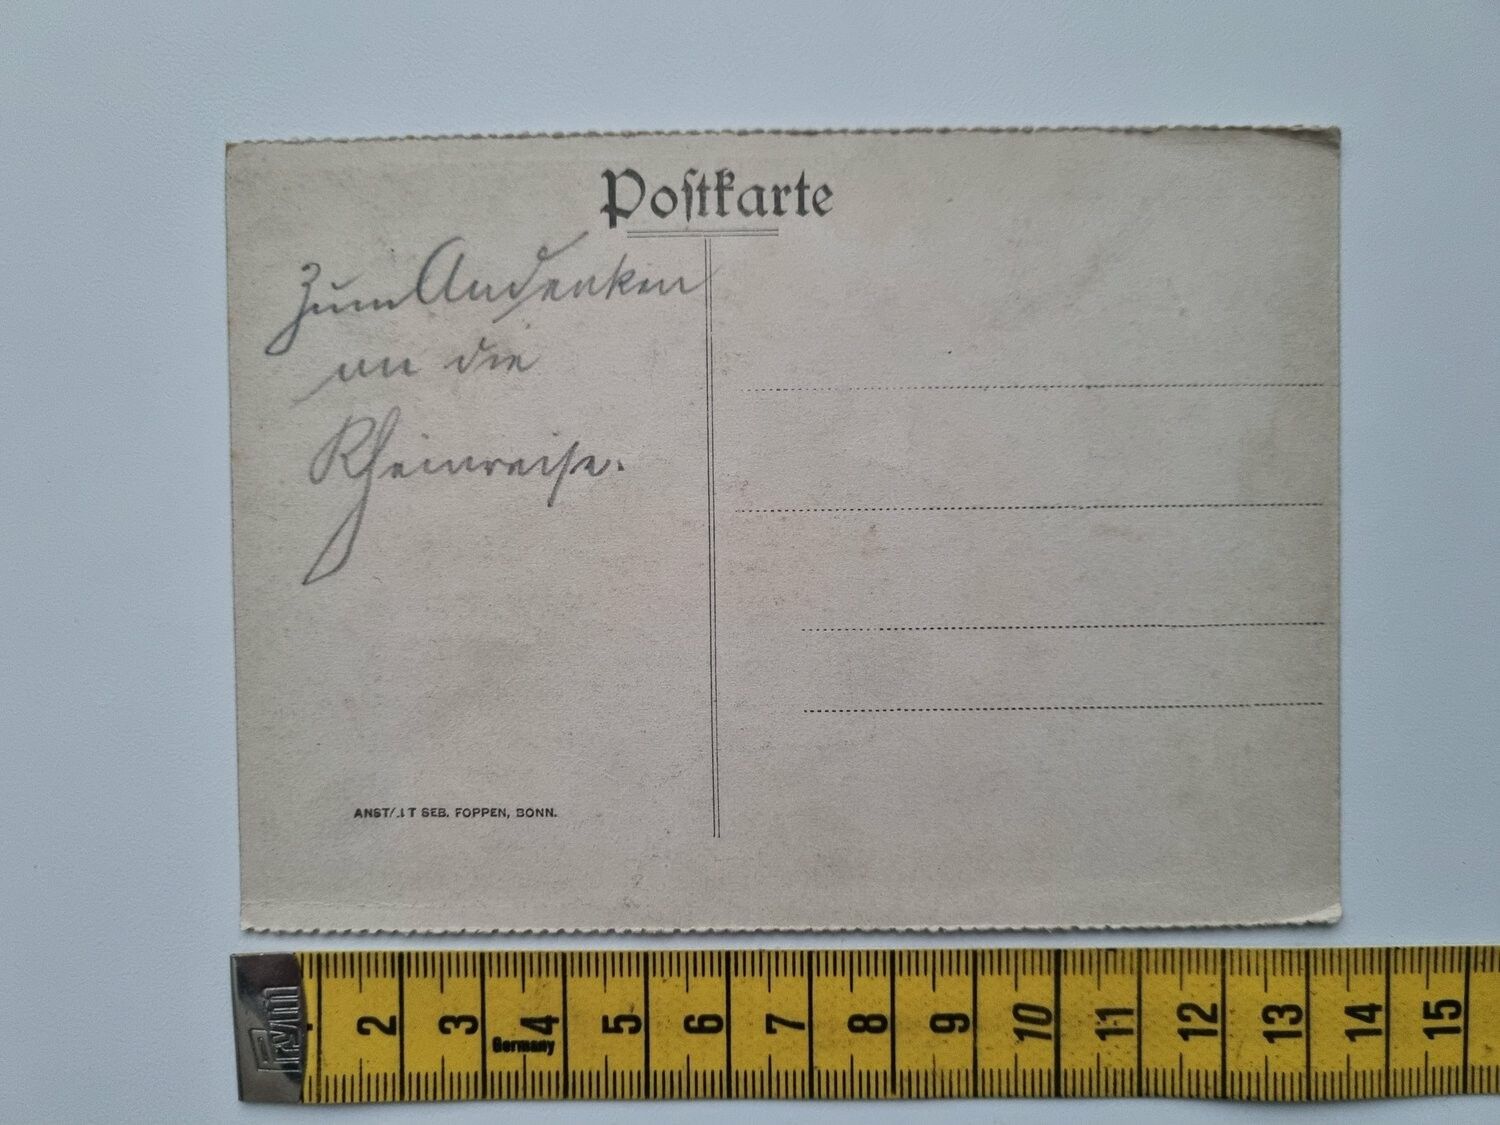 Postkarte
Zum Andenken
an die
Rheinreise.
ANSTALT SEB. FOPPEN, BONN.
Prym
2 3 4 5 6 7 8 9 10 11 12 13 14 15
Germany